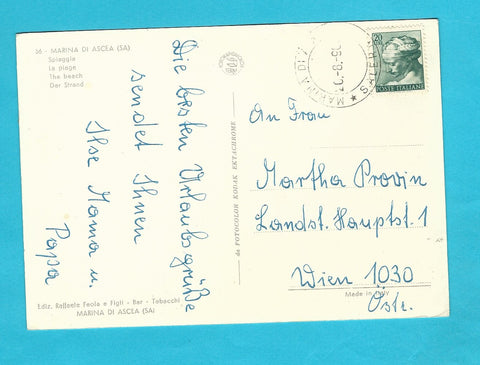 36 - MARINA DI ASCEA (SA)
Spiaggia
La plage
The beach
Der Strand
Die besten Urlaubsgrüße
sendet Ihnen
Ilse Mama u.
Papa
Ediz. Raffaele Feola e Figli - Bar - Tabacchi
MARINA DI ASCEA (SA)
da FOTOCOLOR KODAK EKTACHROME
MARINA DI
SALER
POSTE ITALIANE
An Frau
Martha Provin
Landst. Hauptst. 1
Wien 1030
Made in Italy
Östr.